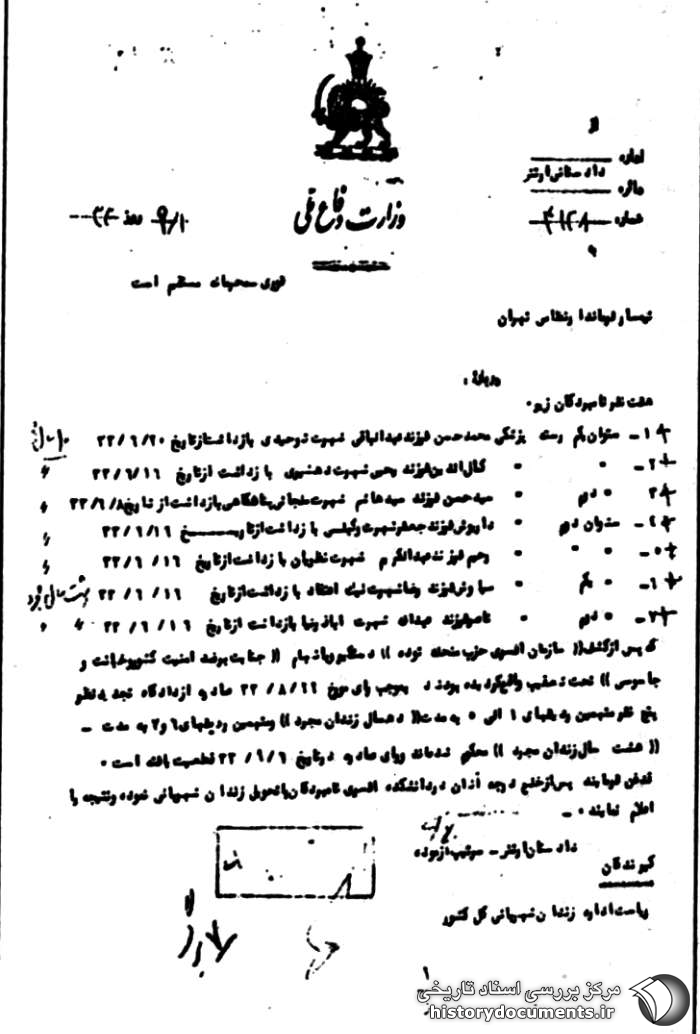 از
اداره
دادستانی ارتش
دائره
شماره ۴۱۲۸
وزارت دفاع ملی
روز ۹/۱۰
فوری محرمانه مستقیم است
تیمسار فرماندار نظامی تهران
درباره :
هشت نفر نامبردگان زیر.
۱- ستوان یکم رسته پزشکی محمد حسن فرزند عبدالباقی شهرت توحیدی بازداشت از تاریخ ۳۳/۶/۲۰
۲- " " " کمال الدین فرزند یحیی شهرت بازداشت از تاریخ ۳۳/۶/۱۶
۳- " دوم " سید حسن فرزند سید هاشم شهرت بازداشت از تاریخ ۳۳/۶/۸
۴- ستوان دوم " داریوش فرزند جعفر شهرت بازداشت از تاریخ ۳۳/۶/۱۶
۵- " " " رحیم فرزند عبدالکریم شهرت بازداشت از تاریخ ۳۳/۶/۱۶
۶- " یکم " سیاوش فرزند رضا شهرت نیک اعتقاد بازداشت از تاریخ ۳۳/۶/۱۶ هشت سال مجرد
۷- " دوم " ناصر فرزند عبداله شهرت بازداشت از تاریخ ۳۳/۶/۱۶
که پس از کشف (( سازمان افسری حزب منحله توده )) در مظان اتهام (( جنایت بر ضد امنیت کشور و خیانت و
جاسوسی )) تحت تعقیب واقع گردیده بودند بموجب رای مورخ صادره از دادگاه تجدید نظر
پنج نفر متهمین ردیفهای ۱ الی ۵ به مدت (( ده سال زندان مجرد )) و متهمین ردیفهای ۶ و ۷ به مدت -
(( هشت سال زندان مجرد )) محکوم شده‌اند و رای صادره در تاریخ ۳۳/۹/۶ قطعیت یافته است .
قدغن فرمایند پس از خلع درجه آنان در دانشکده افسری نامبردگان را تحویل زندان شهربانی نموده و نتیجه را
اعلام نمایند . -
دادستان ارتش - سرتیپ آزموده
گیرندگان
ریاست اداره زندان شهربانی کل کشور
مرکز بررسی اسناد تاریخی
historydocuments.ir